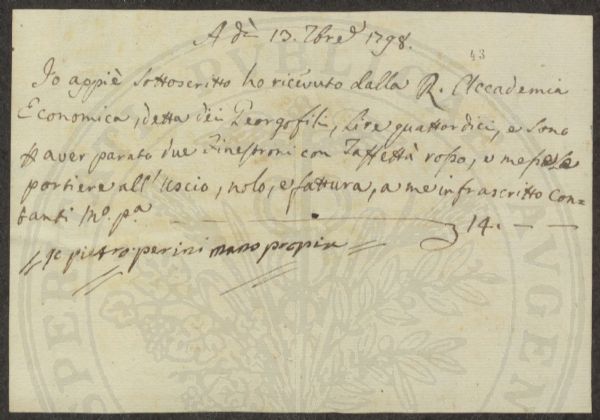 A dì 13. 7bre 1798.
43
Io appiè sottoscritto ho ricevuto dalla R. Accademia
Economica, detta dei Georgofili, Lire quattordici, e sono
p aver parato due Finestroni con Taffettà rosso, e messe le
portiere all'Uscio, nolo, e fattura, a me infrascritto con=
tanti mo. pa. 14. — —
Io pietro perini mano propia
PUBLICAE
PROSPERITATI
AUGENDAE